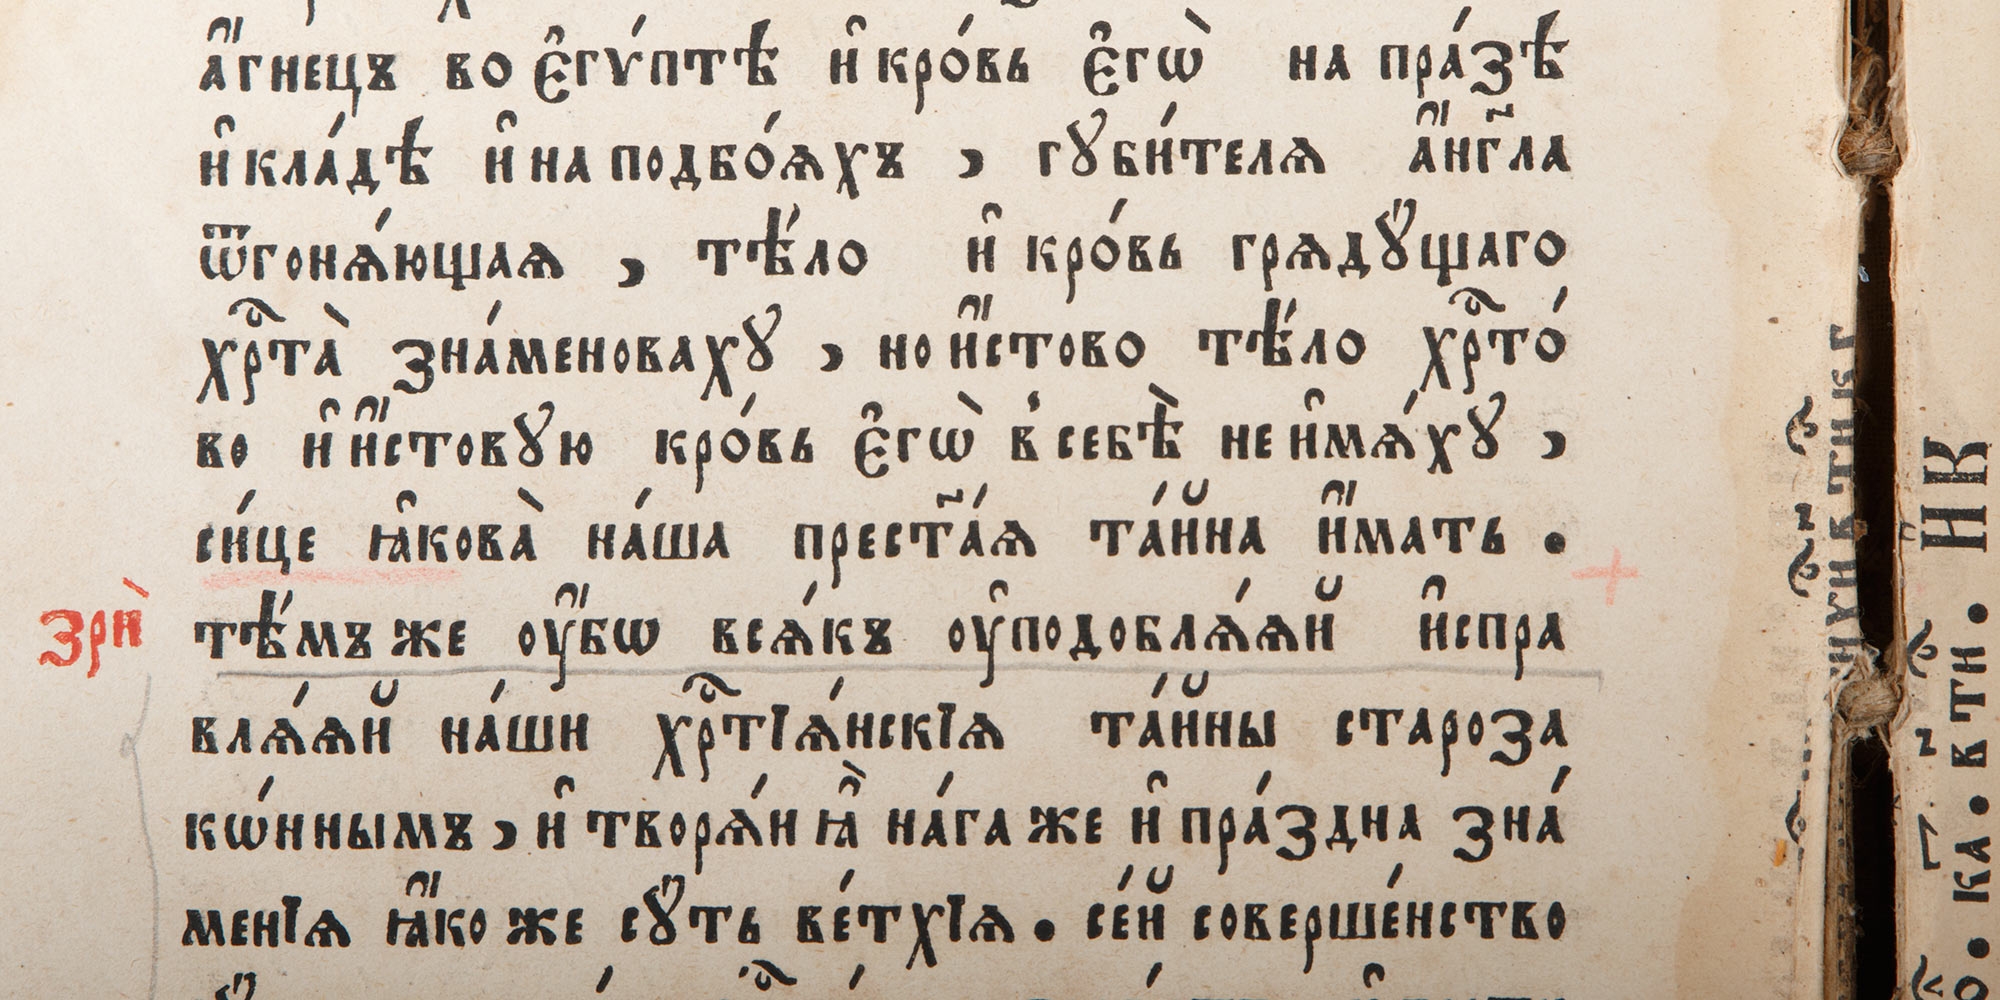 а҆́гнецъ во є҆гѵ́птѣ и҆ кро́вь є҆гѡ̀ на пра́зѣ
и҆ кла́дѣ и҆ на подбо́ѧхъ , гꙋби́телѧ а҆́нг҃ла
ѿгонѧ́ющаѧ , тѣ́ло и҆ кро́вь грѧдꙋ́щаго
хрⷭ҇та̀ зна́меноваху , но и҆́стово тѣ́ло хрⷭ҇то́
во и҆ и҆́стовꙋю кро́вь є҆гѡ̀ в себѣ̀ не и҆мѧ́хꙋ ,
си́це ꙗ҆кова̀ на́ша прест҃а́ѧ та́йна и҆́мать .
зрѝ тѣ́мъ же ᲂу҆́бѡ всѧ́къ ᲂу҆подоблѧ́ѧй и҆спра
влѧ́ѧй на́ши хрⷭ҇тїѧ́нскїѧ та́йны староза
кѡ́ннымъ , и҆ творѧ́й ꙗ҆̀ на́га же и҆ пра́здна зна́
менїѧ ꙗ҆́ко же сꙋ́ть ве́тхїѧ . се́й соверше́нство